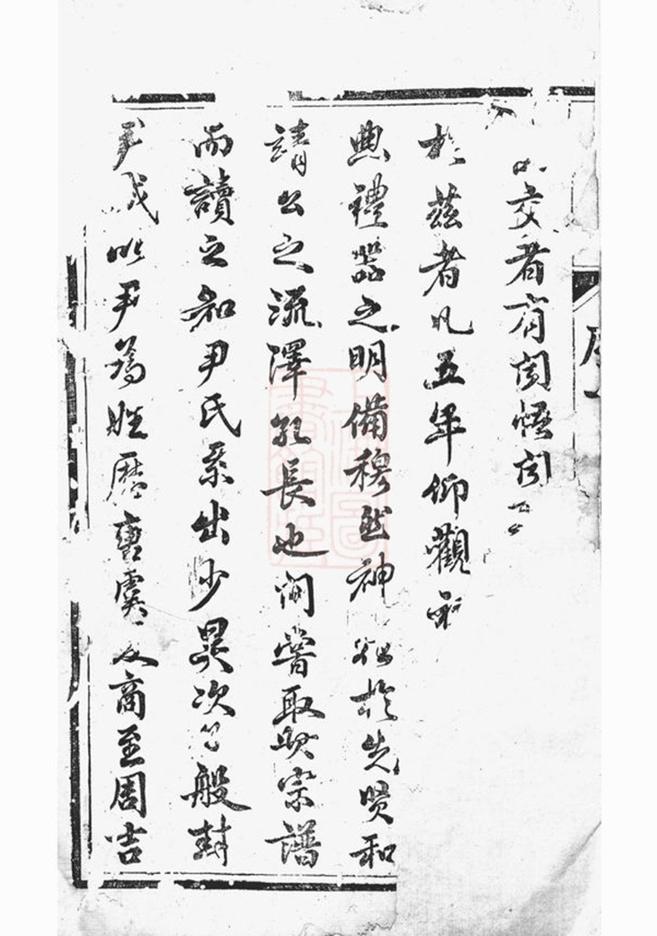 交者有間慨閱
於茲者凡五年仰觀
典禮器之明備穆然神於先贤和
靖公之流澤孔長也间嘗取其宗譜
而讀之知尹氏系出少昊次子般封
尹城以尹為姓歷唐虞及商至周吉